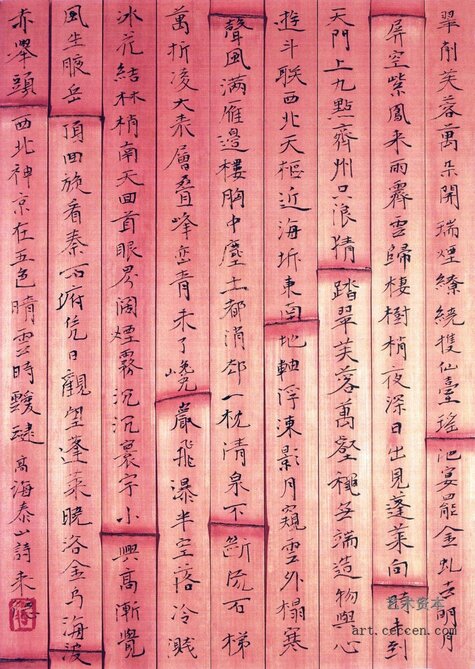 翠削芙蓉萬朵開瑞煙繚繞隻仙臺瑤池宴罷金虬去明月
屏空紫鳳来雨霽雲歸棲樹梢夜深日出見蓬萊向時未到
天門上九點齊州只浪猜踏翠芙蓉萬壑穐無端造物與心
遊斗聯西北天樞近海坼東南地軸浮凍影月窺雲外榻寒
聲風满雁邊樓胸中塵土都消却一枕清泉不斷流石梯
萬折凌大赤層叠峰巒青未了巖飛瀑半空落冷溅
冰花結林梢南天回首眼界阔煙霧沉沉寰宇小興高漸覺
風生腋岳頂回旋看秦石府凭日觀望蓬萊曉浴金烏海波
赤舉頭西北神京在五色晴雲時靉靆 高海泰山詩来
art.cecen.com